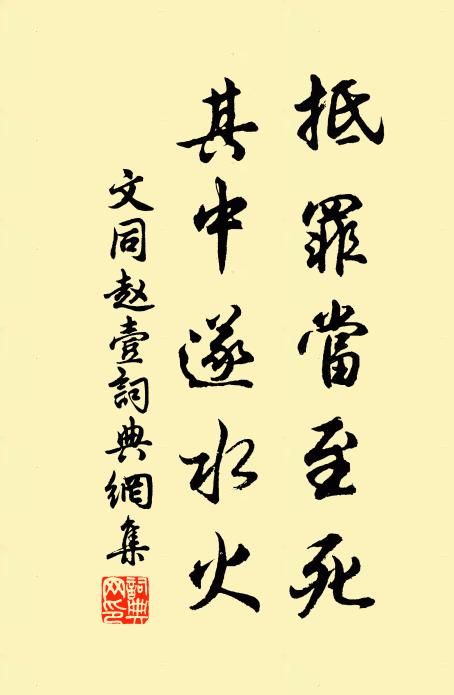 抵罪當至死
其中遂水火
文同赵壹詞典網集
詞典網印